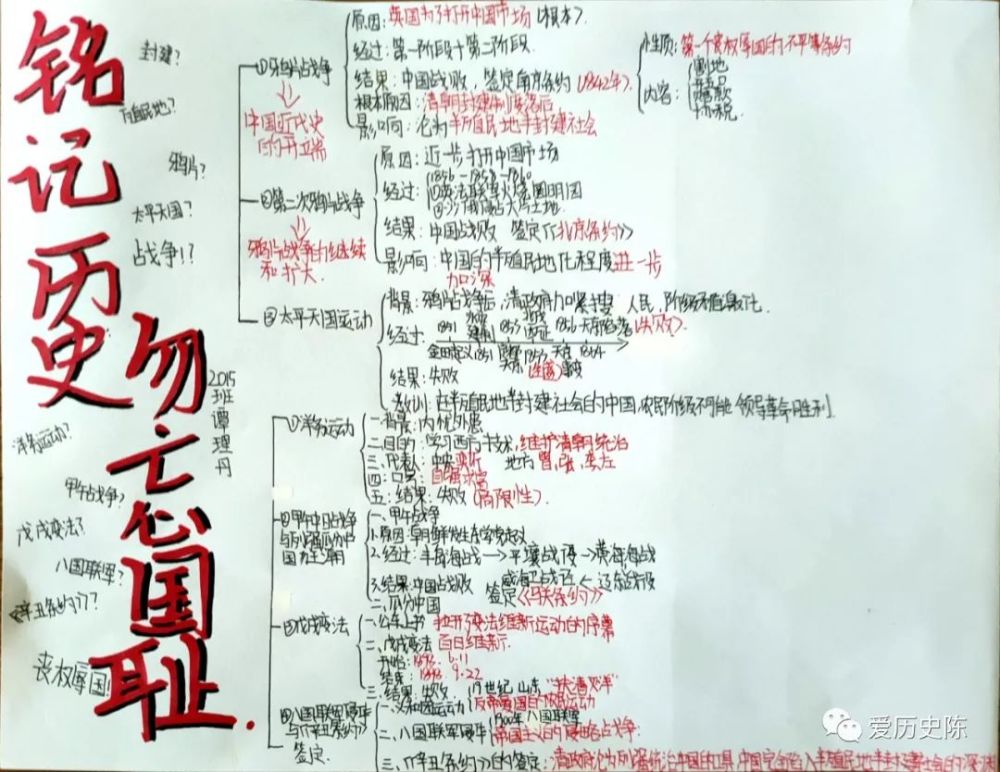 铭记历史
勿亡国耻.
2015班谭理丹
封建?
殖民地?
鸦片?
太平天国?
战争!?
洋务运动?
甲午战争?
戊戌变法?
八国联军?
《辛丑条约》??
丧权辱国!
①鸦片战争
中国近代史的开端
原因: 英国为了打开中国市场(根本).
经过: 第一阶段十第二阶段.
结果: 中国战败, 签定南京条约(1842年)
性质: 第一个丧权辱国的不平等条约
内容:
割地
赔款
根本原因: 清朝封建制度落后
影响: 沦为半殖民地半封建社会
②第二次鸦片战争
鸦片战争的继续和扩大.
原因: 近一步打开中国市场
经过: (1856-1858-1860
①英法联军火烧圆明园
结果: 中国战败 签定《北京条约》
影响: 中国的半殖民地化程度进一步加深
③太平天国运动
背景: 鸦片战争后, 清政府加紧
人民, 阶级矛盾激化.
经过:
1851
1853
1856
天京陷落(失败).
金田起义
1851
1853
天京
1864
事变
结果: 失败
教训: 在半殖民地半封建社会的中国, 农民阶级不可能 领导革命胜利.
①洋务运动
一. 背景: 内忧外患
二. 目的: 学习西方技术, 维护清朝统治
三. 代表人: 中央奕䜣 地方 曾, 张, 李, 左
四: 口号: 自强求富
五: 结果: 失败 (局限性).
②甲午中日战争与列强瓜分中国
一. 甲午战争
1. 原因: 朝鲜发生东学党起义
2. 经过: 丰岛海战→平壤战役→黄海海战
威海卫战役 ← 辽东战役
3. 结果: 中国战败 签定《马关条约》
二. 瓜分中国
③戊戌变法
一. 公车上书 拉开了变法维新运动的序幕
二. 戊戌变法 百日维新.
开始: 1898. 6. 11
结束: 1898. 9. 22
三. 结果: 失败
④八国联军侵华与《辛丑条约》签定
一. 义和团运动
19世纪 山东 "扶清灭洋"
反帝爱国的农民运动
二. 八国联军侵华
1900年 八国联军
帝国主义的侵略战争.
三. 《辛丑条约》的签定: 清政府沦为列强统治中国的工具, 中国完全陷入半殖民地半封建社会的深渊
爱历史陈